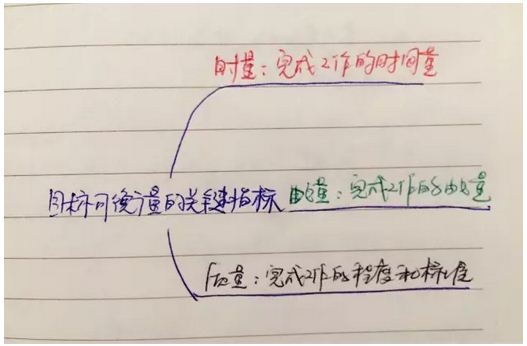 时量：完成工作的时间量
目标可衡量的关键指标
数量：完成工作的数量
质量：完成工作的程度和标准